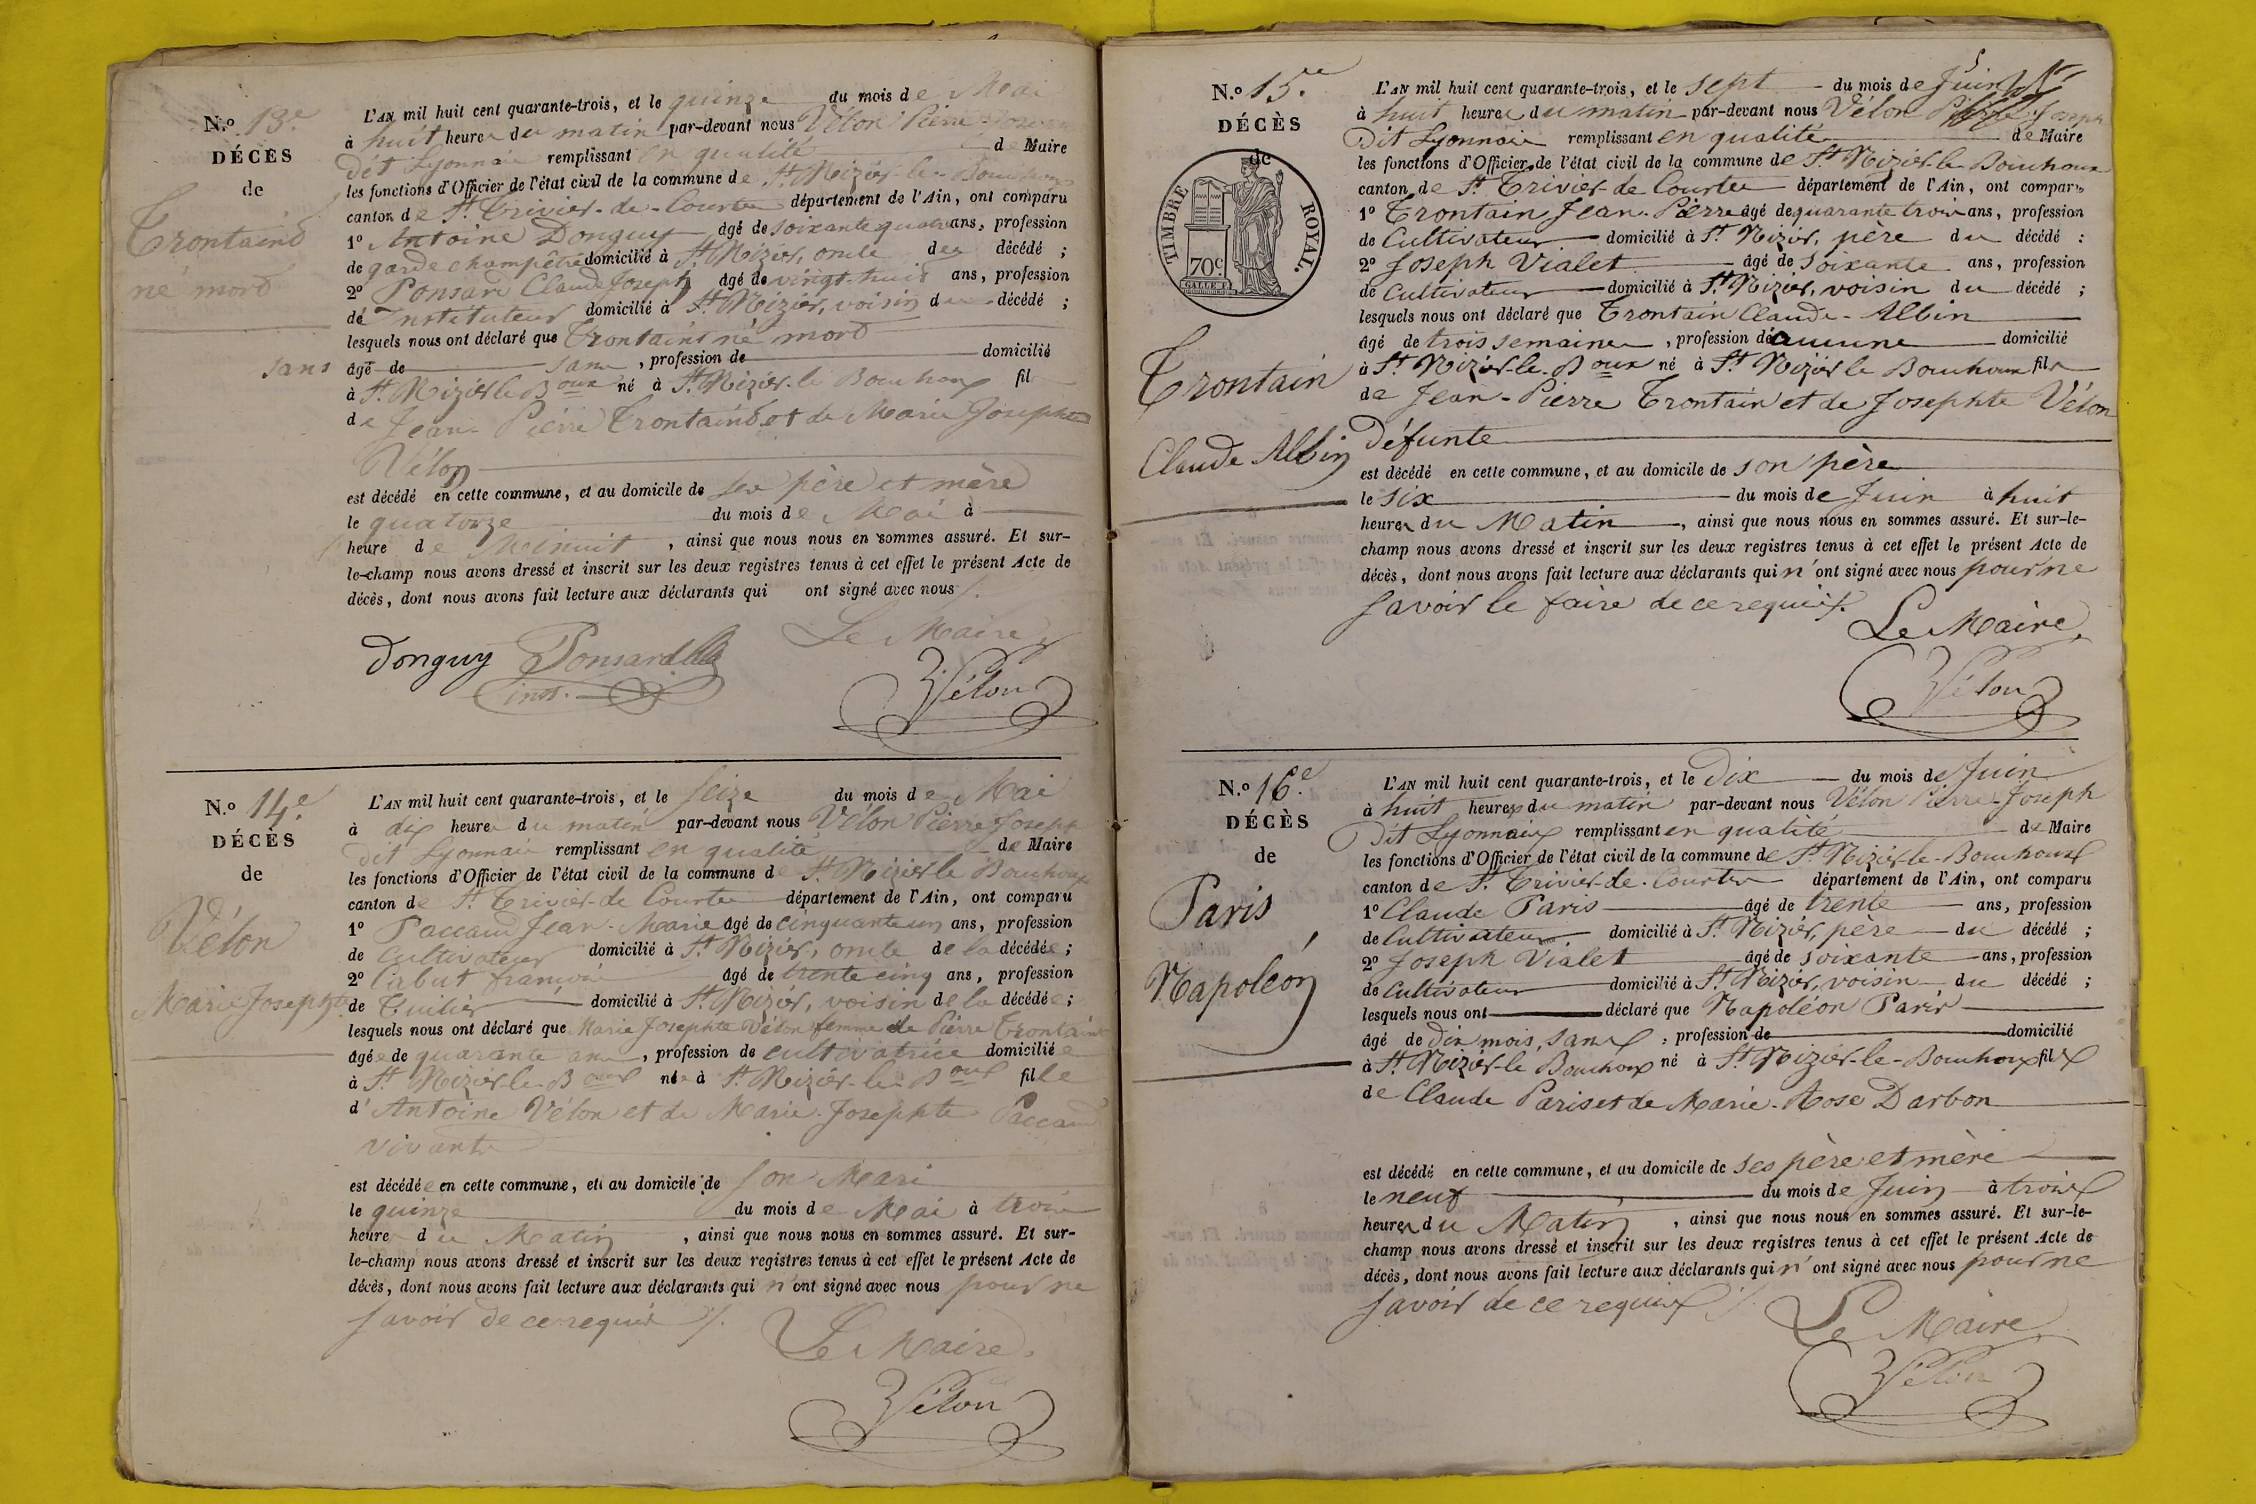 N.o 13.e
DÉCÈS
de
Trontaind
né mord
sans
L'AN mil huit cent quarante-trois, et le quinze du mois de Mai
à huit heures du matin par-devant nous Vélon Pierre Joseph
Dit Lyonnais remplissant en qualité d Maire
les fonctions d'Officier de l'état civil de la commune de St. Nizier-le-Bouchoux
canton de St. Trivier-de-Courtes département de l'Ain, ont comparu
1o Antoine Donguy âgé de soixante quatre ans, profession
de garde champêtre domicilié à St. Nizier, oncle des décédé ;
2o Ponsard Claude Joseph âgé de vingt-huit ans, profession
de Instituteur domicilié à St. Nizier, voisin du décédé ;
lesquels nous ont déclaré que Trontaint né mord
âgé de sans, profession de domicilié
à St. Nizier le Boux né à St. Nizier-le Bouchoux fil
de Jean-Pierre Trontaind et de Marie Josephte
Vélon
est décédé en cette commune, et au domicile de ses père et mère
le quatorze du mois de Mai à
heure de Minuit, ainsi que nous nous en sommes assuré. Et sur-
le-champ nous avons dressé et inscrit sur les deux registres tenus à cet effet le présent Acte de
décès, dont nous avons fait lecture aux déclarants qui ont signé avec nous /.
Le Maire
Donguy Ponsard
inst.
Vélon
N.o 14.e
DÉCÈS
de
Vélon
Marie Josephte
L'AN mil huit cent quarante-trois, et le seize du mois de Mai
à dix heures du matin par-devant nous Vélon Pierre Joseph
Dit Lyonnais remplissant en qualité de Maire
les fonctions d'Officier de l'état civil de la commune de St. Nizier le Bouchoux
canton de St. Trivier-de Courtes département de l'Ain, ont comparu
1o Paccaud Jean-Marie âgé de cinquante un ans, profession
de Cultivateur domicilié à St. Nizier, oncle de la décédée ;
2o Cabut françois âgé de trente cinq ans, profession
de Tuilier domicilié à St. Nizier, voisin de la décédée ;
lesquels nous ont déclaré que Marie Josephte Vélon femme de Pierre Trontaint
âgée de quarante ans, profession de cultivatrice domiciliée
à St. Nizier le Boux née à St. Nizier-le-Boux fille
d'Antoine Vélon et de Marie-Josephte Paccaud
vivants
est décédée en cette commune, et au domicile de son Mari
le quinze du mois de Mai à trois
heures du Matin, ainsi que nous nous en sommes assuré. Et sur-
le-champ nous avons dressé et inscrit sur les deux registres tenus à cet effet le présent Acte de
décès, dont nous avons fait lecture aux déclarants qui n'ont signé avec nous pour ne
savoir de ce requis /.
Le Maire
Vélon
N.o 15.e
DÉCÈS
de
TIMBRE ROYAL.
70c
Trontain
Claude Albin
L'AN mil huit cent quarante-trois, et le sept du mois de Juin
à huit heures du matin par-devant nous Vélon Pierre Joseph
Dit Lyonnais remplissant en qualité de Maire
les fonctions d'Officier de l'état civil de la commune de St. Nizier-le Bouchoux
canton de St. Trivier-de Courtes département de l'Ain, ont comparu
1o Trontain Jean-Pierre âgé de quarante trois ans, profession
de Cultivateur domicilié à St. Nizier, père du décédé :
2o Joseph Vialet âgé de soixante ans, profession
de Cultivateur domicilié à St. Nizier, voisin du décédé ;
lesquels nous ont déclaré que Trontain Claude-Albin
âgé de trois semaines, profession d'aucune domicilié
à St. Nizier-le-Boux né à St. Nizier le Bouchoux fils
de Jean-Pierre Trontain et de Josephte Vélon
défunte
est décédé en cette commune, et au domicile de son père
le six du mois de Juin à huit
heures du Matin, ainsi que nous nous en sommes assuré. Et sur-le-
champ nous avons dressé et inscrit sur les deux registres tenus à cet effet le présent Acte de
décès, dont nous avons fait lecture aux déclarants qui n'ont signé avec nous pour ne
savoir le faire de ce requis.
Le Maire
Vélon
N.o 16.e
DÉCÈS
de
Paris
Napoléon
L'AN mil huit cent quarante-trois, et le Dix du mois de Juin
à huit heures du matin par-devant nous Vélon Pierre-Joseph
Dit Lyonnais remplissant en qualité de Maire
les fonctions d'Officier de l'état civil de la commune de St. Nizier-le-Bouchoux
canton de St. Trivier-de-Courtes département de l'Ain, ont comparu
1o Claude Paris âgé de trente ans, profession
de Cultivateur domicilié à St. Nizier, père du décédé ;
2o Joseph Vialet âgé de soixante ans, profession
de Cultivateur domicilié à St. Nizier, voisin du décédé ;
lesquels nous ont déclaré que Napoléon Paris
âgé de dix mois, sans, profession de domicilié
à St. Nizier-le Bouchoux né à St. Nizier-le-Bouchoux fils
de Claude Paris et de Marie-Rose Darbon
est décédé en cette commune, et au domicile de ses père et mère
le neuf du mois de Juin à trois
heures du Matin, ainsi que nous nous en sommes assuré. Et sur-le-
champ nous avons dressé et inscrit sur les deux registres tenus à cet effet le présent Acte de
décès, dont nous avons fait lecture aux déclarants qui n'ont signé avec nous pour ne
savoir de ce requis /.
Le Maire
Vélon